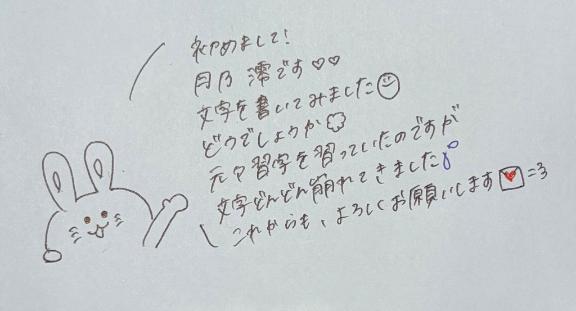 初めまして!
月乃 澪です♡♡
文字を書いてみました☺
どうでしょうか
元々習字を習っていたのですが
文字どんどん崩れてきました
これからも、よろしくお願いします💌=3